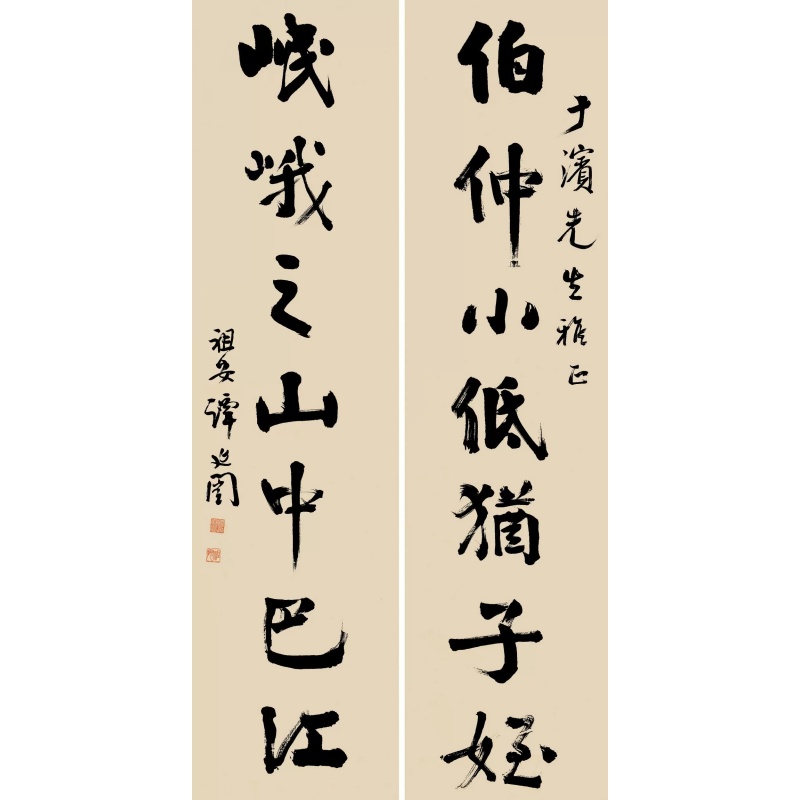 于濱先生雅正
伯仲小低猶子姪
岷峨之山中巴江
祖安譚延闓